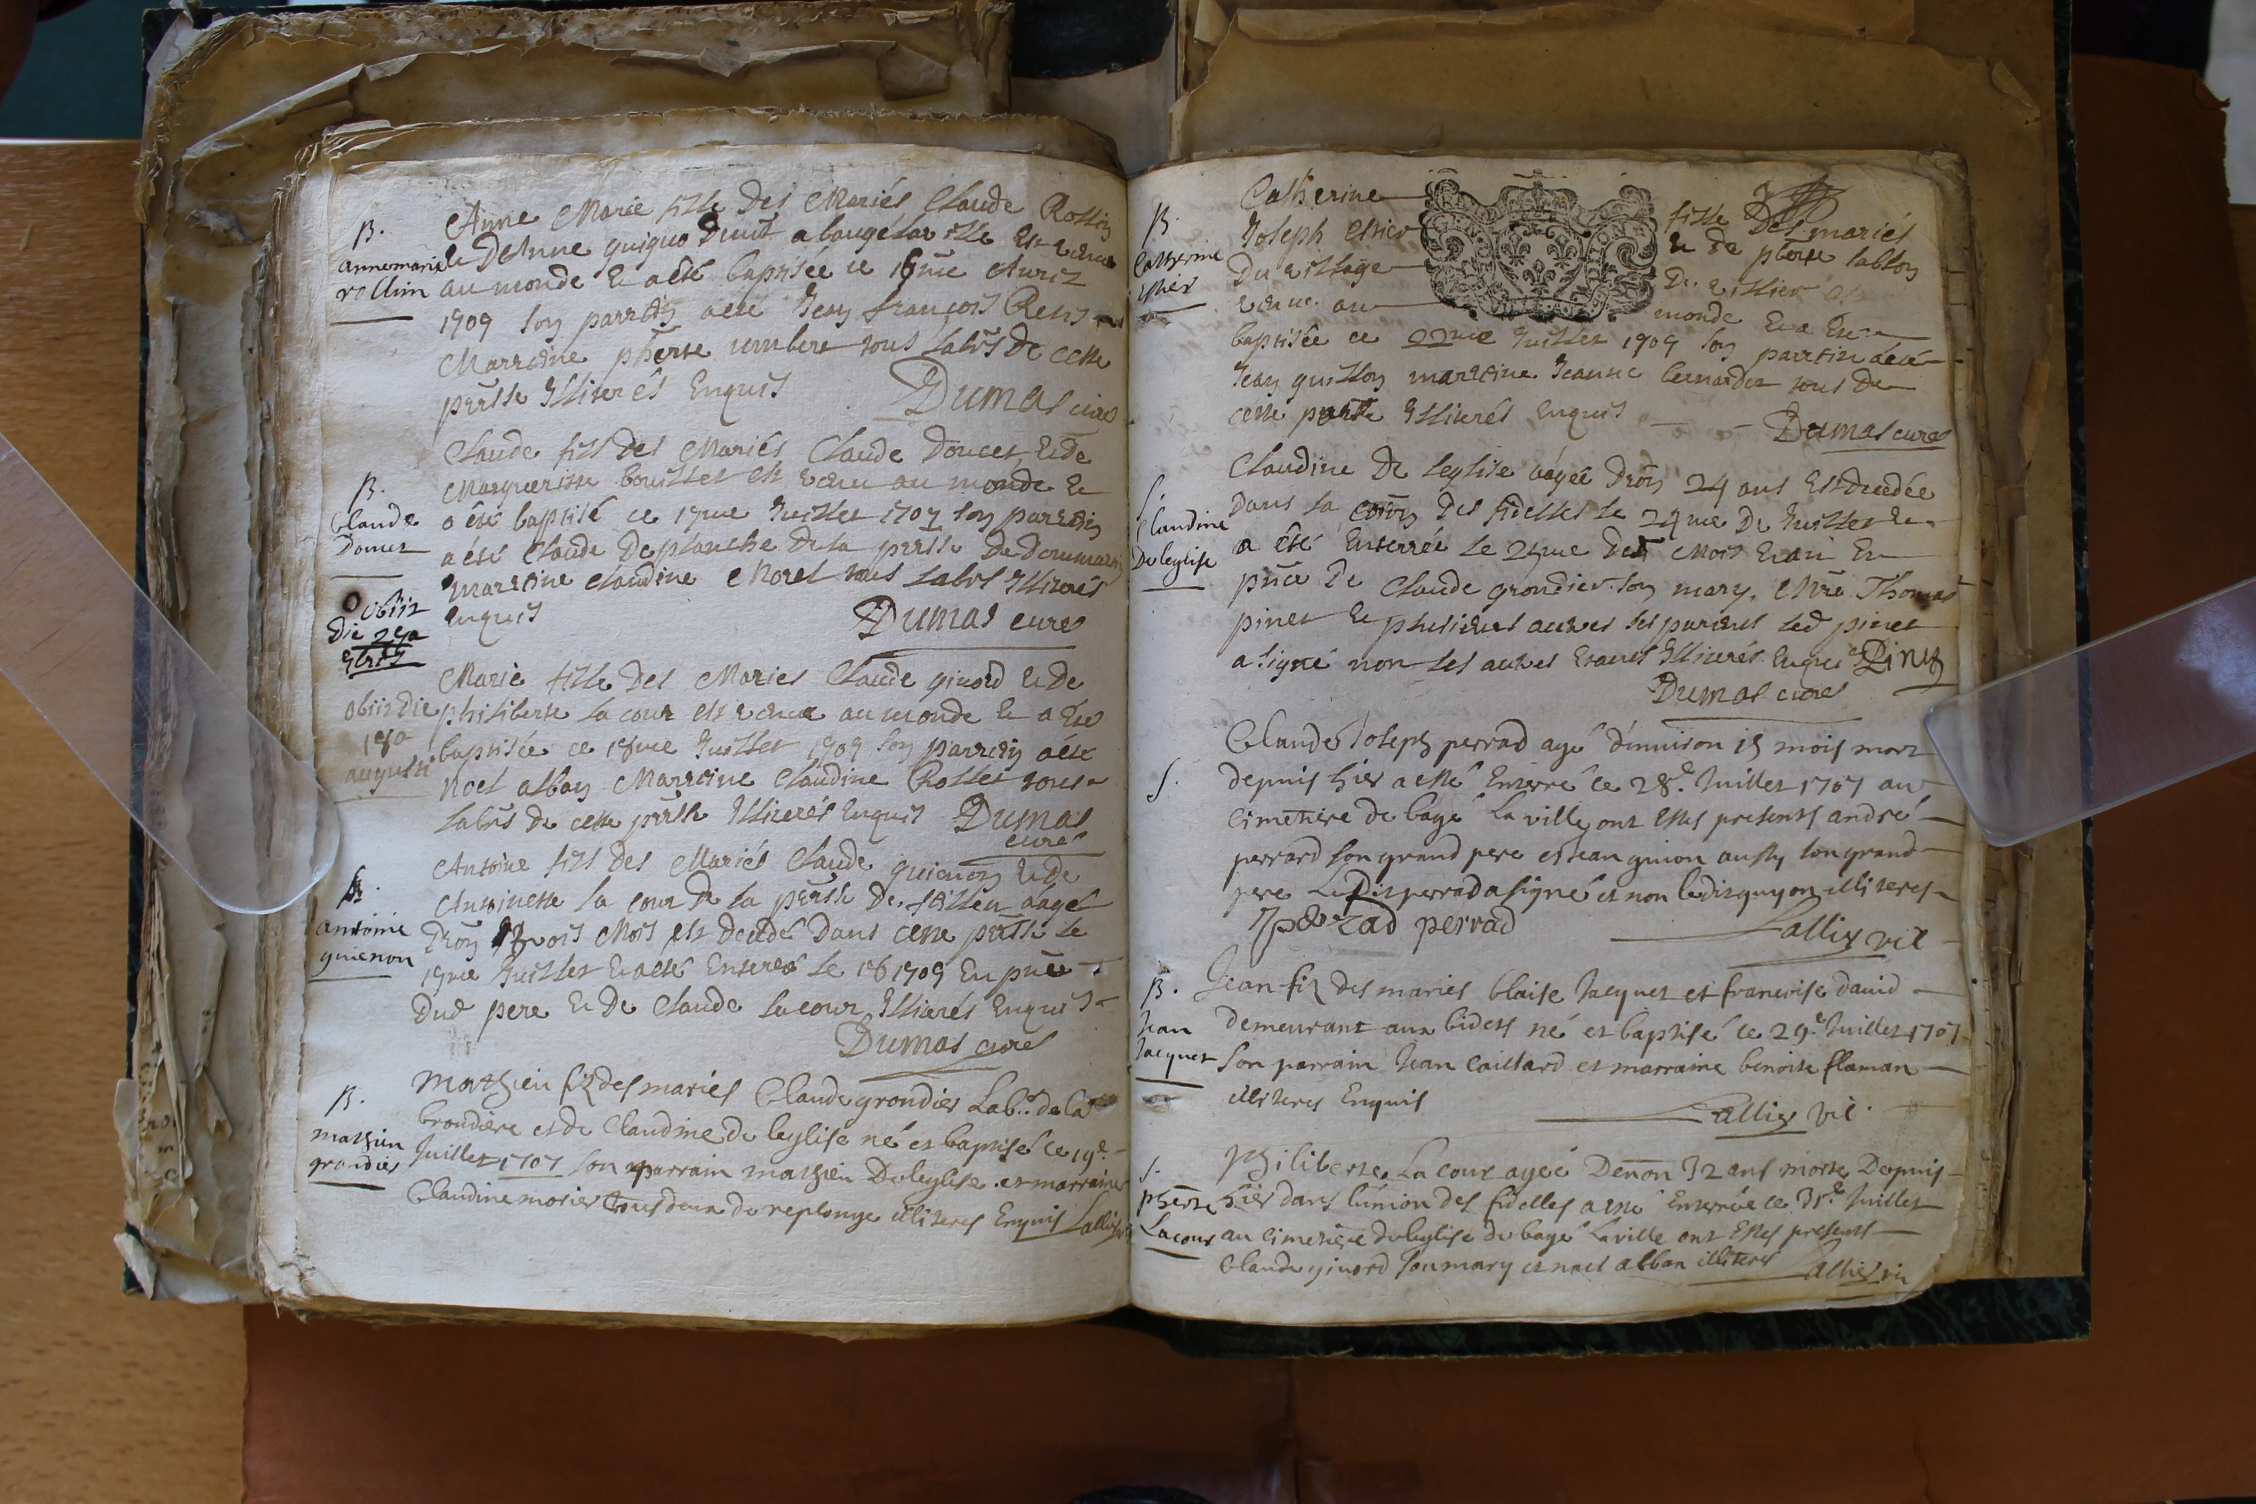 B.
annemarie
rollin
Anne Marie fille des Mariés Claude Rollin
& DeAnne au bangé la ville Est venue
au monde & a été baptisée ce
1707 son parrein a été Jean françois
Marreine phērte umbert tous labrs de cette
prsse Illiterés Enquis
Dumas curé
B.
Claude
Doucet
Obiit
Die
Claude fils des Mariés Claude Doucet & de
Margueritte bouillet est venu au monde &
a été baptisé ce juillet 1707 son parrein
a été Claude Deplanche de la prsse de Dommartin
marreine Claudine Morel tous labrs Illiterés
enquis
Dumas curé
obiit Die
18a
augusti
Marie fille des Mariés Claude givord & de
philiberte la cour est venue au monde & a été
baptisée ce juillet 1707 son parrein a été
Noel alban Marreine Claudine Rollet tous
labrs de cette prsse Illiterés Enquis Dumas
curé
antoine
guienon
Antoine fils des Mariés Claude guienon & de
Antoinette la cour de la prsse de aagé
Dron trois Mois est decedé dans cette prsse le
juillet & a été Enterré le 16 1707 En pnce
Dud pere & de Claude lacour Illiterés Enquis
Dumas curé
B.
mathieu
grondier
Mathieu fiz des mariés Claude grondier Labr. de la
brondiere et de Claudine de leglise né et baptisé ce 19e.
Juillet 1707 son parrain mathieu Deleglise et marraine
Claudine morier tous deux de replonge illiteres Enquis Lallier
B
Catherine
Catherine
Joseph fille Des mariés
Du village & de pberte sablon
venue au De villier
monde & a Ete
baptisée ce 22me juillet 1707 son parrein a été
Jean guillon marreine Jeanne bernardet tous de
cette prsse Illiterés Enquis
Dumas curé
S.
Claudine
Deleglise
Claudine De leglise aagée Dron 24 ans Est decedée
Dans la coion Des fidelles le 24me de juillet &
a été Enterrée le 25me Des Mois & an En
pnce De Claude grondier son mary, Mre Thomas
pinet & plusieurs autres ses parens led pinet
a signé non les autres Illiterés Enquis Pinet
Dumas curé
S.
Claude Joseph perrad agé d'environ 15 mois mort
depuis hier a esté Enterré ce 28e. Juillet 1707 au
cimetiere de bagé La ville ont Estés presents andré
perrard son grand pere et Jean guion aussy son grand
pere Ledit perrad a signé et non ledit guyon illiteres
perrad
Lallier vic
B.
Jean
Jacquet
Jean fiz des mariés blaise Jacquet et francoise david
demeurant aux bidets né et baptisé ce 29e Juillet 1707
son parrain Jean Caillard et marraine benoite flaman
illiteres Enquis
Lallier vic.
S.
phērte
Lacour
Philiberte La cour agée Denon 32 ans morte Depuis
hier dans l'union des fidelles a esté Enterrée ce 31e Juillet
au cimetiere de leglise de bagé La ville ont Estes presents
Claude givord son mary et noel alban illiteres Lallier vic